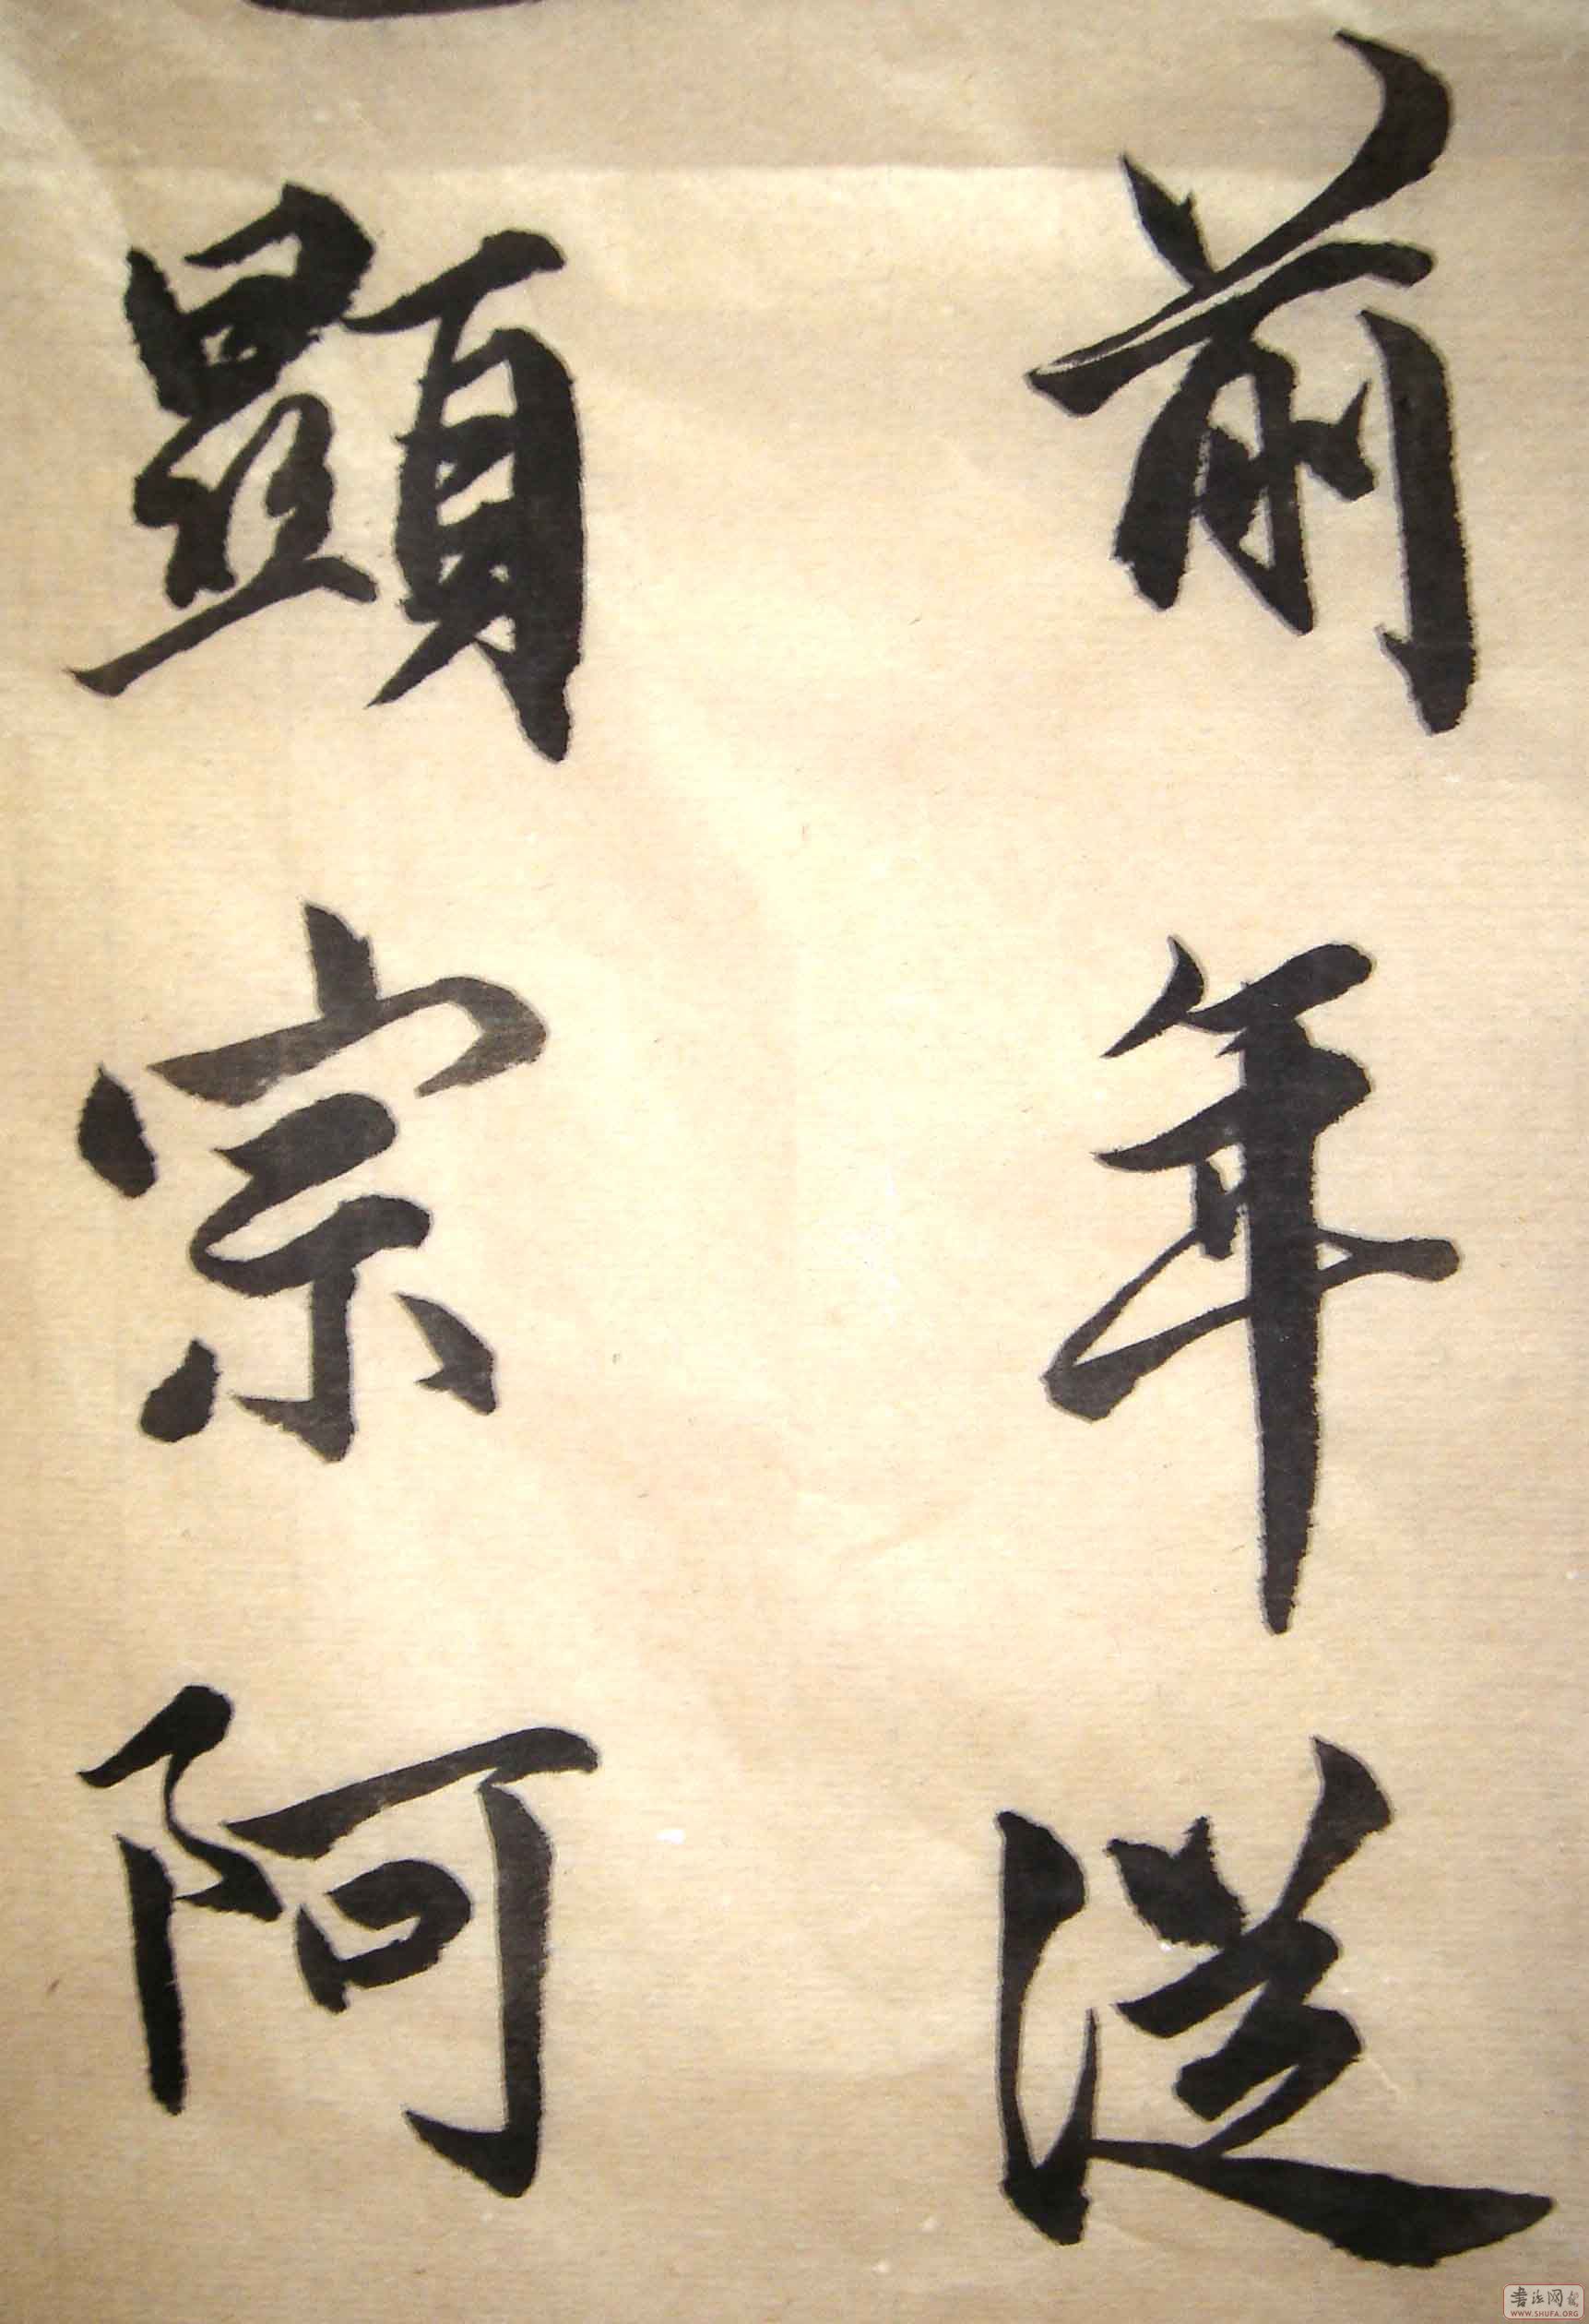 前年從
顯宗阿
書法网
WWW.SHUFA.ORG